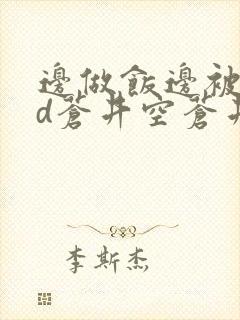 邊做飯邊被
d蒼井空蒼井
李斯杰